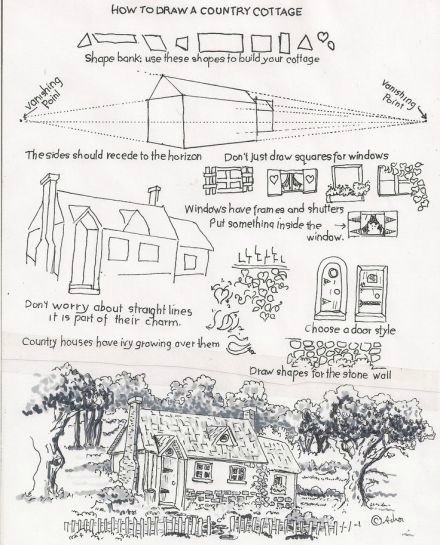 HOW TO DRAW A COUNTRY COTTAGE
Shape bank: use these shapes to build your cottage
Vanishing
Point
Vanishing
Point
The sides should recede to the horizon
Don't just draw squares for windows
Windows have frames and shutters
Put something inside the
window.
Don't worry about straight lines
it is part of their charm.
Choose a door style
Country houses have ivy growing over them
Draw shapes for the stone wall